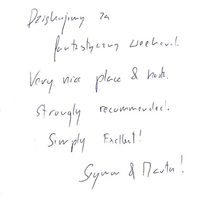 Dziękujemy za
fantastyczny weekend.
Very nice place & hosts.
Strongly recommended.
Simply Exellent!
Szymon & Marta!